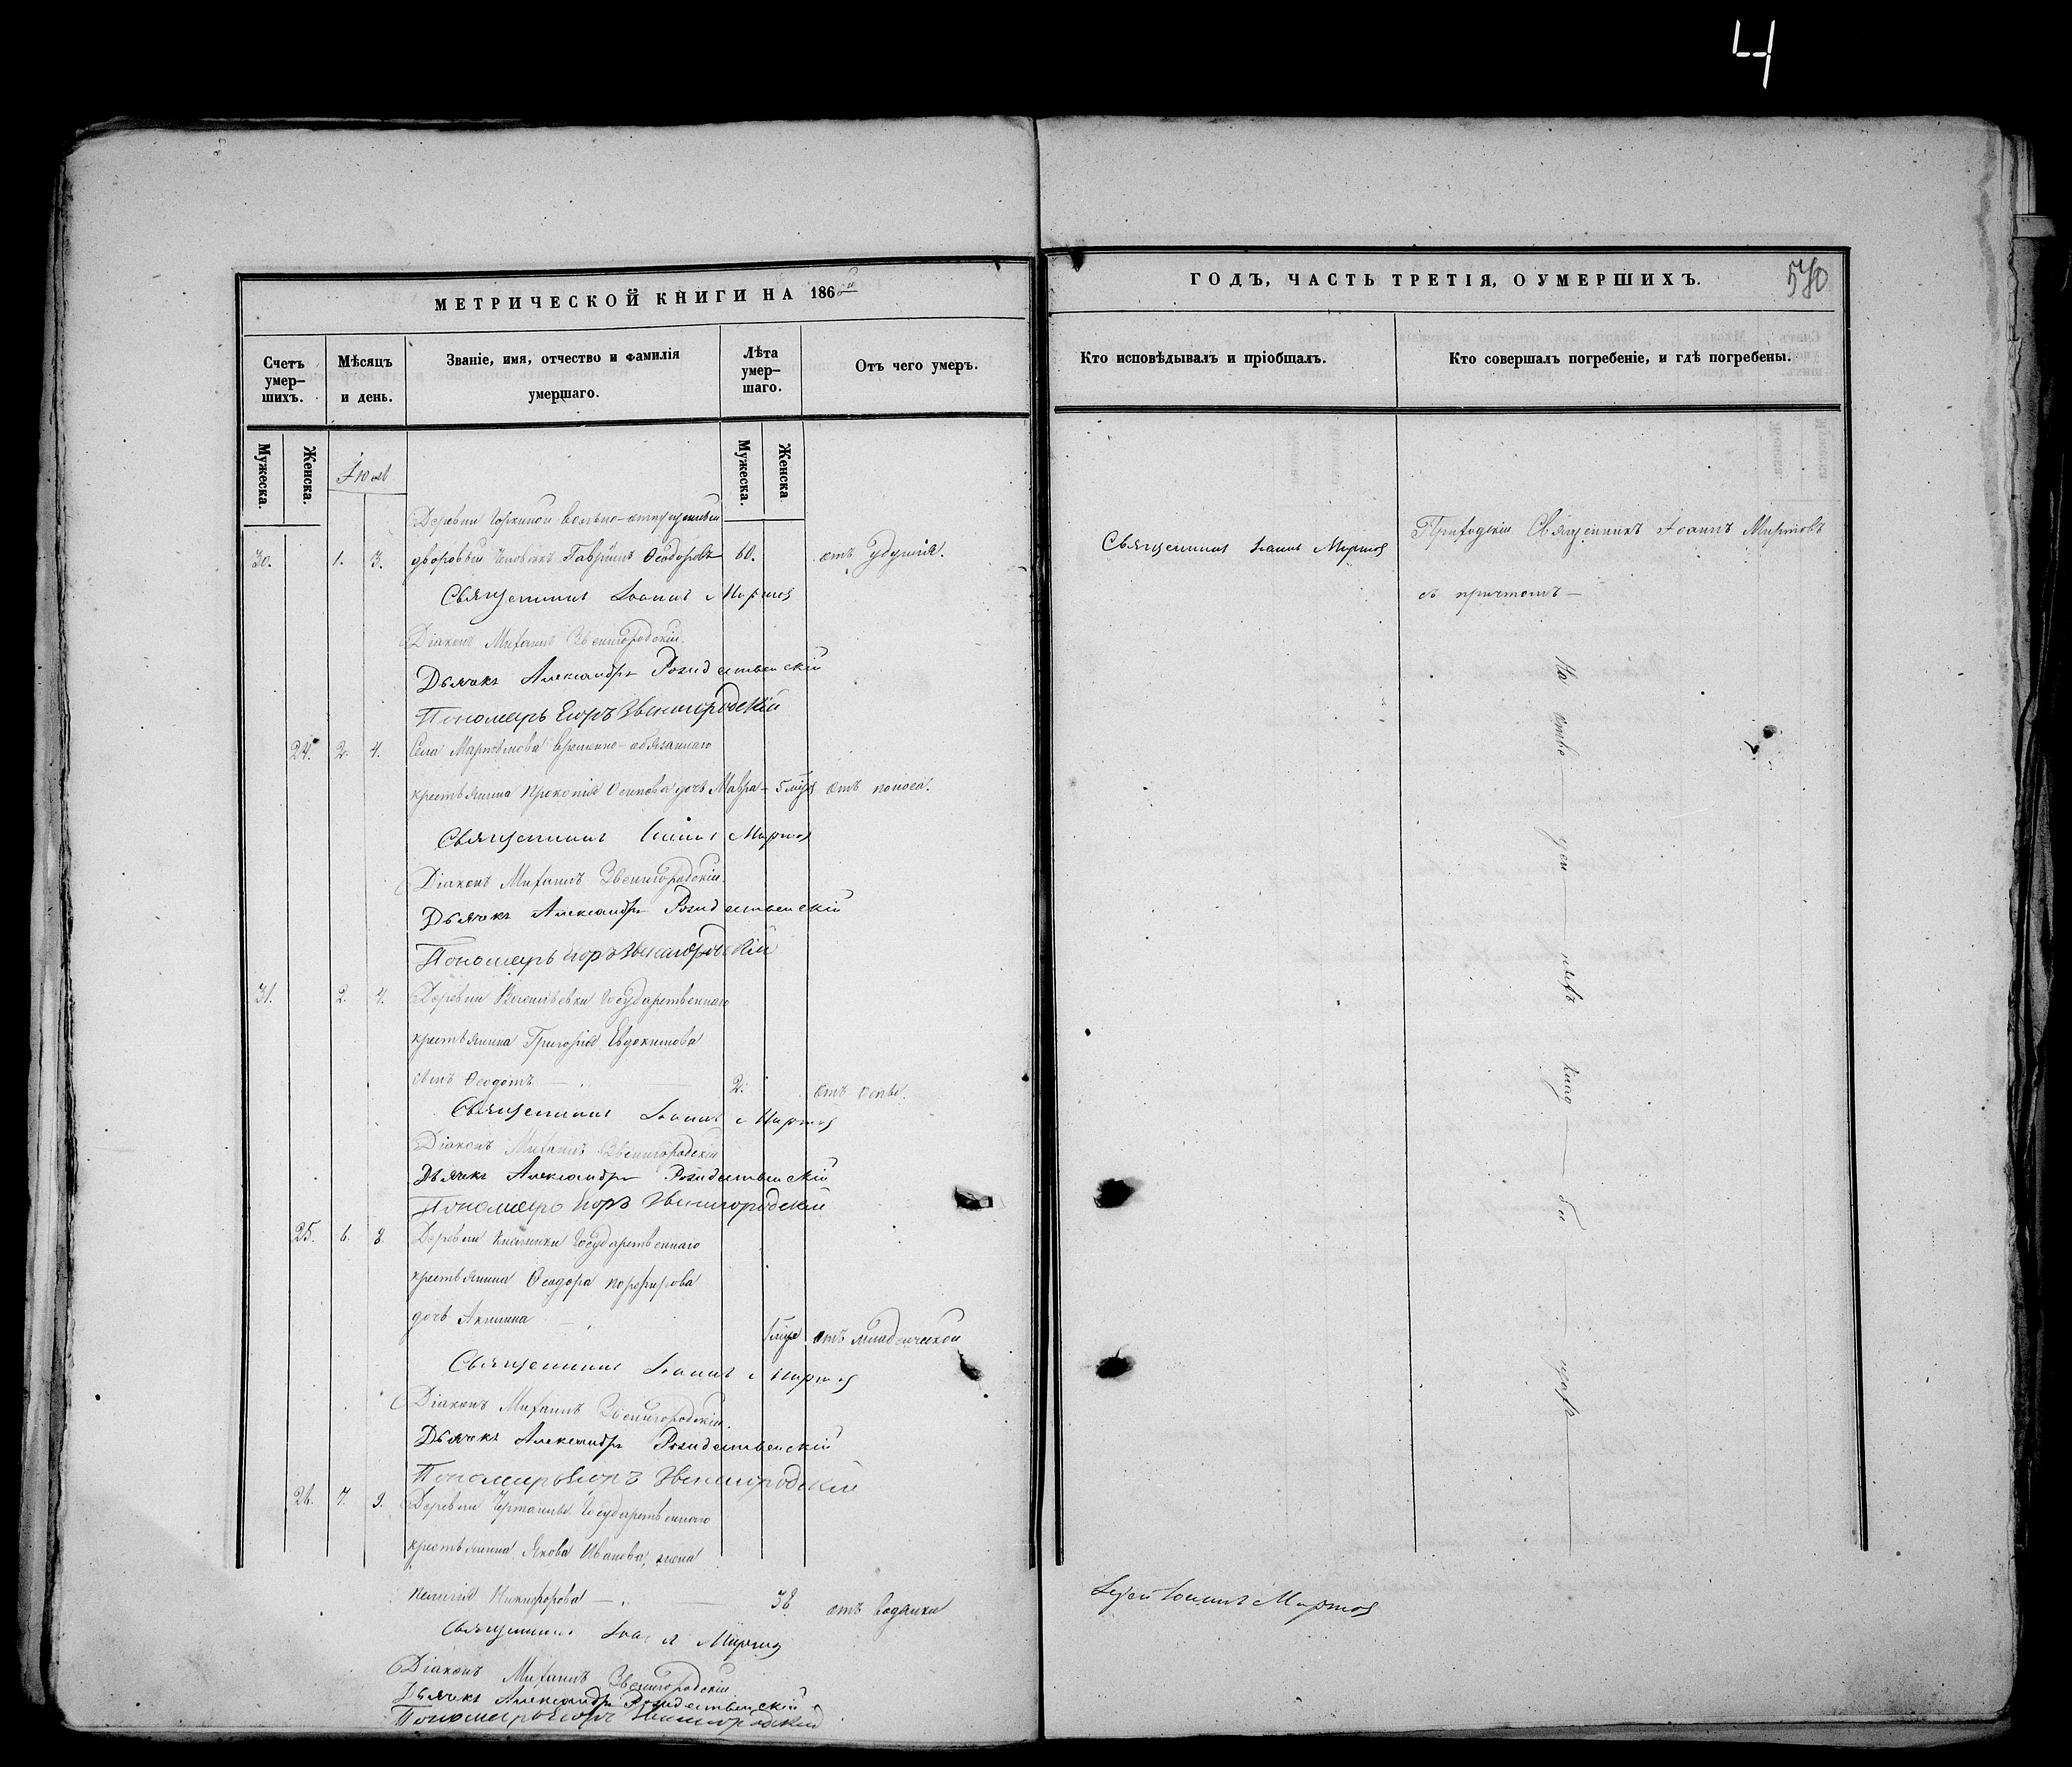 4
МЕТРИЧЕСКОЙ КНИГИ НА 186
Счетъ умер- шихъ.
Мѣсяцъ и день.
Званіе, имя, отчество и фамилія умершаго.
Лѣта умер- шаго.
Отъ чего умеръ.
Мужеска.
Женска.
Мужеска.
Женска
Деревни вольно-отпущенный
30. 1. 3. дворовый человѣкъ Гавріилъ Ѳеодоровъ 60. отъ удушія.
Священникъ Іоаннъ Миртовъ
Діаконъ Михаилъ Звенигородскій.
Дьячекъ Александръ Рождественскій
Пономарь Егоръ Звенигородскій
24. 2. 4. Села временно-обязаннаго
крестьянина Прокопія Осипова дочь Мавра - 5 отъ поноса.
Священникъ Іоаннъ Миртовъ
Діаконъ Михаилъ Звенигородскій.
Дьячекъ Александръ Рождественскій
Пономарь Егоръ Звенигородскій
31. 2. 4. Деревни Государственнаго
крестьянина Григорія Евдокимова
сынъ Ѳеодотъ — 2. отъ оспы.
Священникъ Іоаннъ Миртовъ
Діаконъ Михаилъ Звенигородскій
Дьячекъ Александръ Рождественскій
Пономарь Егоръ Звенигородскій
25. 6. 8. Деревни Государственнаго
крестьянина Ѳеодора Порфирова
дочь отъ младенческой
Священникъ Іоаннъ Миртовъ
Діаконъ Михаилъ Звенигородскій.
Дьячекъ Александръ Рождественскій
Пономарь Егоръ Звенигородскій
26. 7. 9. Деревни Государственнаго
крестьянина Якова Иванова, жена
Пелагія Никифорова — 38 отъ водянки
Священникъ Миртовъ
Діаконъ Михаилъ Звенигородскій
Дьячекъ Александръ Рождественскій
Пономарь Егоръ Звенигородскій
ГОДЪ, ЧАСТЬ ТРЕТІЯ, О УМЕРШИХЪ.
Кто исповѣдывалъ и пріобщалъ.
Кто совершалъ погребеніе, и гдѣ погребены.
Священникъ Іоаннъ Миртовъ
Приходскій Священникъ Іоаннъ Миртовъ
съ причтомъ —
На
Іерей Іоаннъ Миртовъ